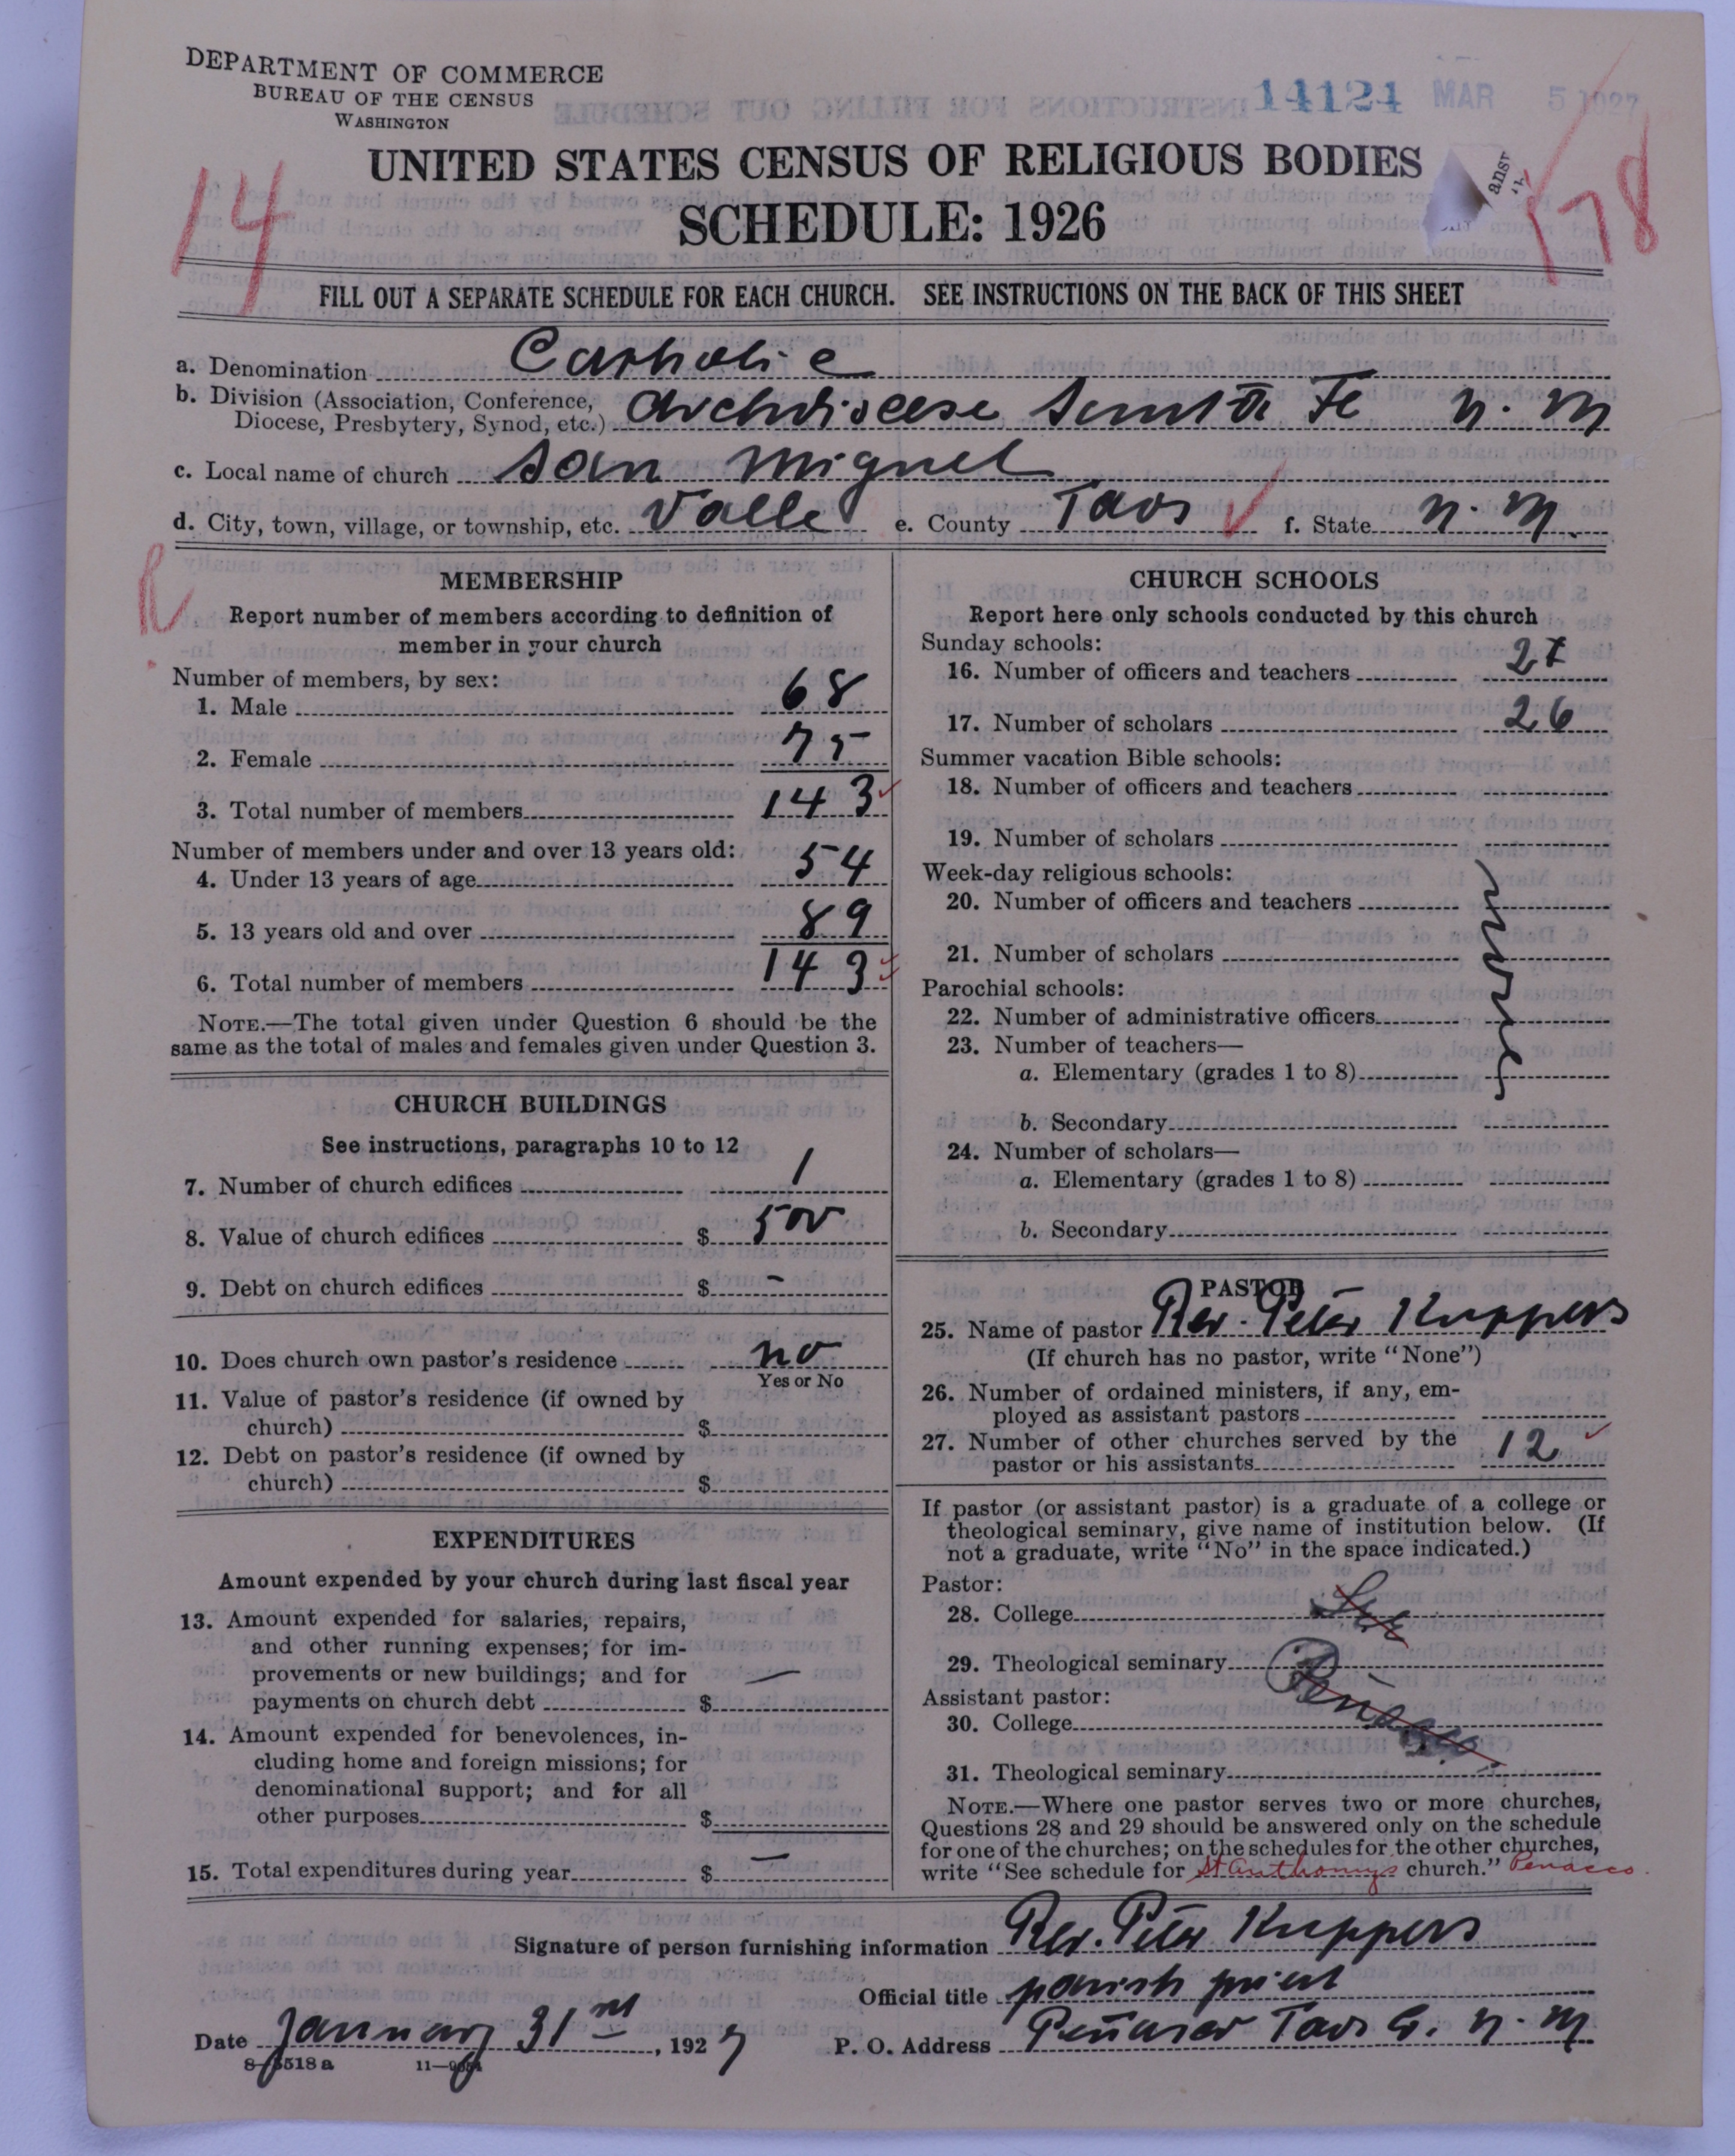 DEPARTMENT OF COMMERCE
BUREAU OF THE CENSUS
WASHINGTON
14124 MAR 5 1927
UNITED STATES CENSUS OF RELIGIOUS BODIES
SCHEDULE: 1926
14
178
FILL OUT A SEPARATE SCHEDULE FOR EACH CHURCH. SEE INSTRUCTIONS ON THE BACK OF THIS SHEET
a. Denomination Catholic
b. Division (Association, Conference, Diocese, Presbytery, Synod, etc.) Archdiocese Santa Fe N. M
c. Local name of church San Miguel
d. City, town, village, or township, etc. Valle e. County Taos f. State N. M.
R
MEMBERSHIP
Report number of members according to definition of
member in your church
Number of members, by sex:
1. Male 68
2. Female 75
3. Total number of members 143
Number of members under and over 13 years old:
4. Under 13 years of age 54
5. 13 years old and over 89
6. Total number of members 143
NOTE.—The total given under Question 6 should be the
same as the total of males and females given under Question 3.
CHURCH BUILDINGS
See instructions, paragraphs 10 to 12
7. Number of church edifices 1
8. Value of church edifices $ 500
9. Debt on church edifices $ -
10. Does church own pastor's residence no
Yes or No
11. Value of pastor's residence (if owned by
church) $
12. Debt on pastor's residence (if owned by
church) $
EXPENDITURES
Amount expended by your church during last fiscal year
13. Amount expended for salaries, repairs,
and other running expenses; for im-
provements or new buildings; and for
payments on church debt $ —
14. Amount expended for benevolences, in-
cluding home and foreign missions; for
denominational support; and for all
other purposes $
15. Total expenditures during year $ —
CHURCH SCHOOLS
Report here only schools conducted by this church
Sunday schools:
16. Number of officers and teachers
17. Number of scholars 26
Summer vacation Bible schools:
18. Number of officers and teachers
19. Number of scholars
Week-day religious schools:
20. Number of officers and teachers
21. Number of scholars
Parochial schools:
22. Number of administrative officers
23. Number of teachers—
a. Elementary (grades 1 to 8)
b. Secondary
24. Number of scholars—
a. Elementary (grades 1 to 8)
b. Secondary
none
PASTOR
25. Name of pastor Rev. Peter Kuppers
(If church has no pastor, write "None")
26. Number of ordained ministers, if any, em-
ployed as assistant pastors
27. Number of other churches served by the
pastor or his assistants 12
If pastor (or assistant pastor) is a graduate of a college or
theological seminary, give name of institution below. (If
not a graduate, write "No" in the space indicated.)
Pastor:
28. College See
29. Theological seminary
Assistant pastor:
30. College
31. Theological seminary
NOTE.—Where one pastor serves two or more churches,
Questions 28 and 29 should be answered only on the schedule
for one of the churches; on the schedules for the other churches,
write "See schedule for St Anthonys church." Penasco
Signature of person furnishing information Rev. Peter Kuppers
Official title parish priest
Date January 31st, 1927 P. O. Address Peñasco Taos Co. N. M
8-5518 a